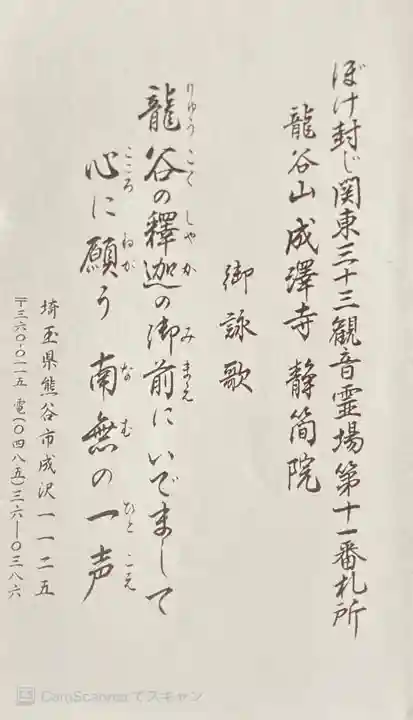 ぼけ封じ関東三十三観音霊場第十一番札所
龍谷山成澤寺 静簡院
御詠歌
龍谷の釋迦の御前にいでまして
りゅうこく しゃか みまえ
心に願う 南無の一声
こころ ねが なむ ひとこえ
埼玉県熊谷市成沢一一二五
〒三六〇-〇一一五 電(〇四八五)三六―〇三八六
CamScannerでスキャン